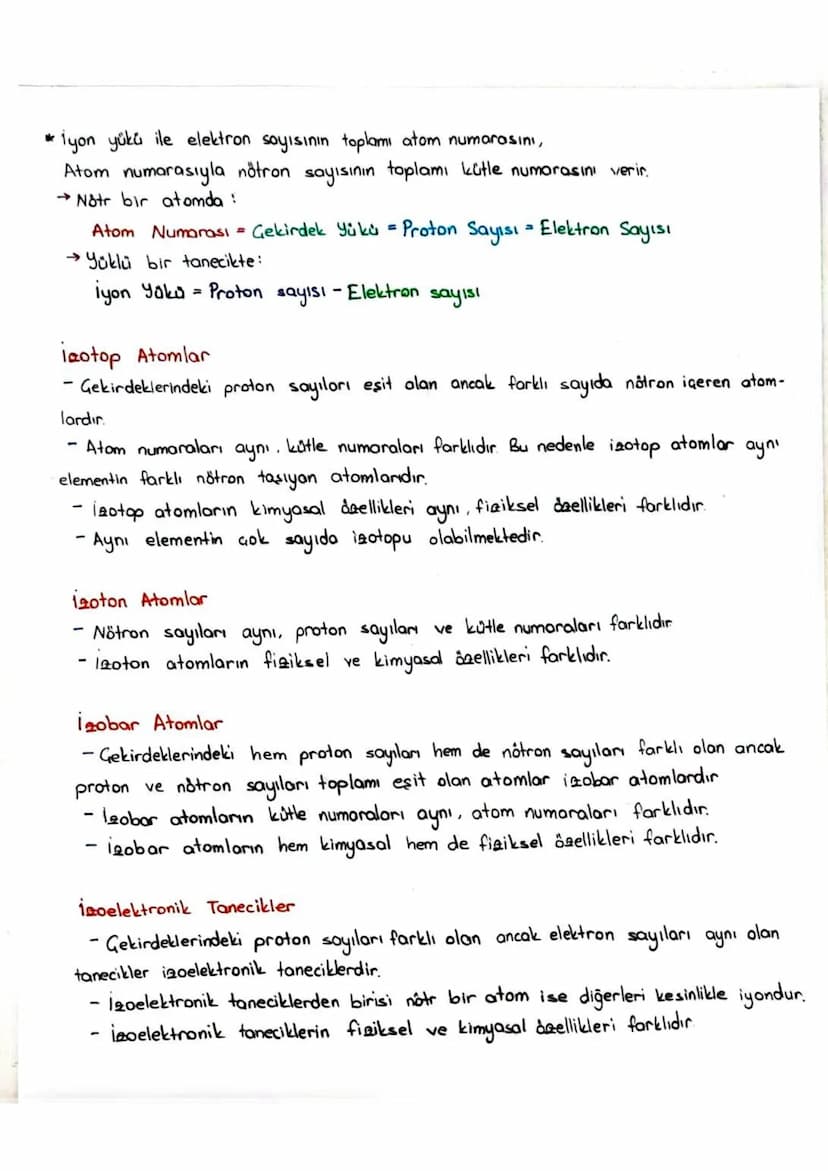 * İyon yükü ile elektron sayısının toplamı atom numarasını,
Atom numarasıyla nötron sayısının toplamı kütle numarasını verir.
→ Nötr bir atomda :
Atom Numarası = Çekirdek Yükü = Proton Sayısı = Elektron Sayısı
→ Yüklü bir tanecikte:
İyon Yükü = Proton sayısı - Elektron sayısı
İzotop Atomlar
- Çekirdeklerindeki proton sayıları eşit olan ancak farklı sayıda nötron içeren atom-
lardır.
- Atom numaraları aynı, kütle numaraları farklıdır. Bu nedenle izotop atomlar aynı
elementin farklı nötron taşıyan atomlarıdır.
- İzotop atomların kimyasal özellikleri aynı, fiziksel özellikleri farklıdır.
- Aynı elementin çok sayıda izotopu olabilmektedir.
İzoton Atomlar
- Nötron sayıları aynı, proton sayıları ve kütle numaraları farklıdır
- İzoton atomların fiziksel ve kimyasal özellikleri farklıdır.
İzobar Atomlar
- Çekirdeklerindeki hem proton sayıları hem de nötron sayıları farklı olan ancak
proton ve nötron sayıları toplamı eşit olan atomlar izobar atomlardır
- İzobar atomların kütle numaraları aynı, atom numaraları farklıdır.
- İzobar atomların hem kimyasal hem de fiziksel özellikleri farklıdır.
İzoelektronik Tanecikler
- Çekirdeklerindeki proton sayıları farklı olan ancak elektron sayıları aynı olan
tanecikler izoelektronik taneciklerdir.
- İzoelektronik taneciklerden birisi nötr bir atom ise diğerleri kesinlikle iyondur.
- İzoelektronik taneciklerin fiziksel ve kimyasal özellikleri farklıdır